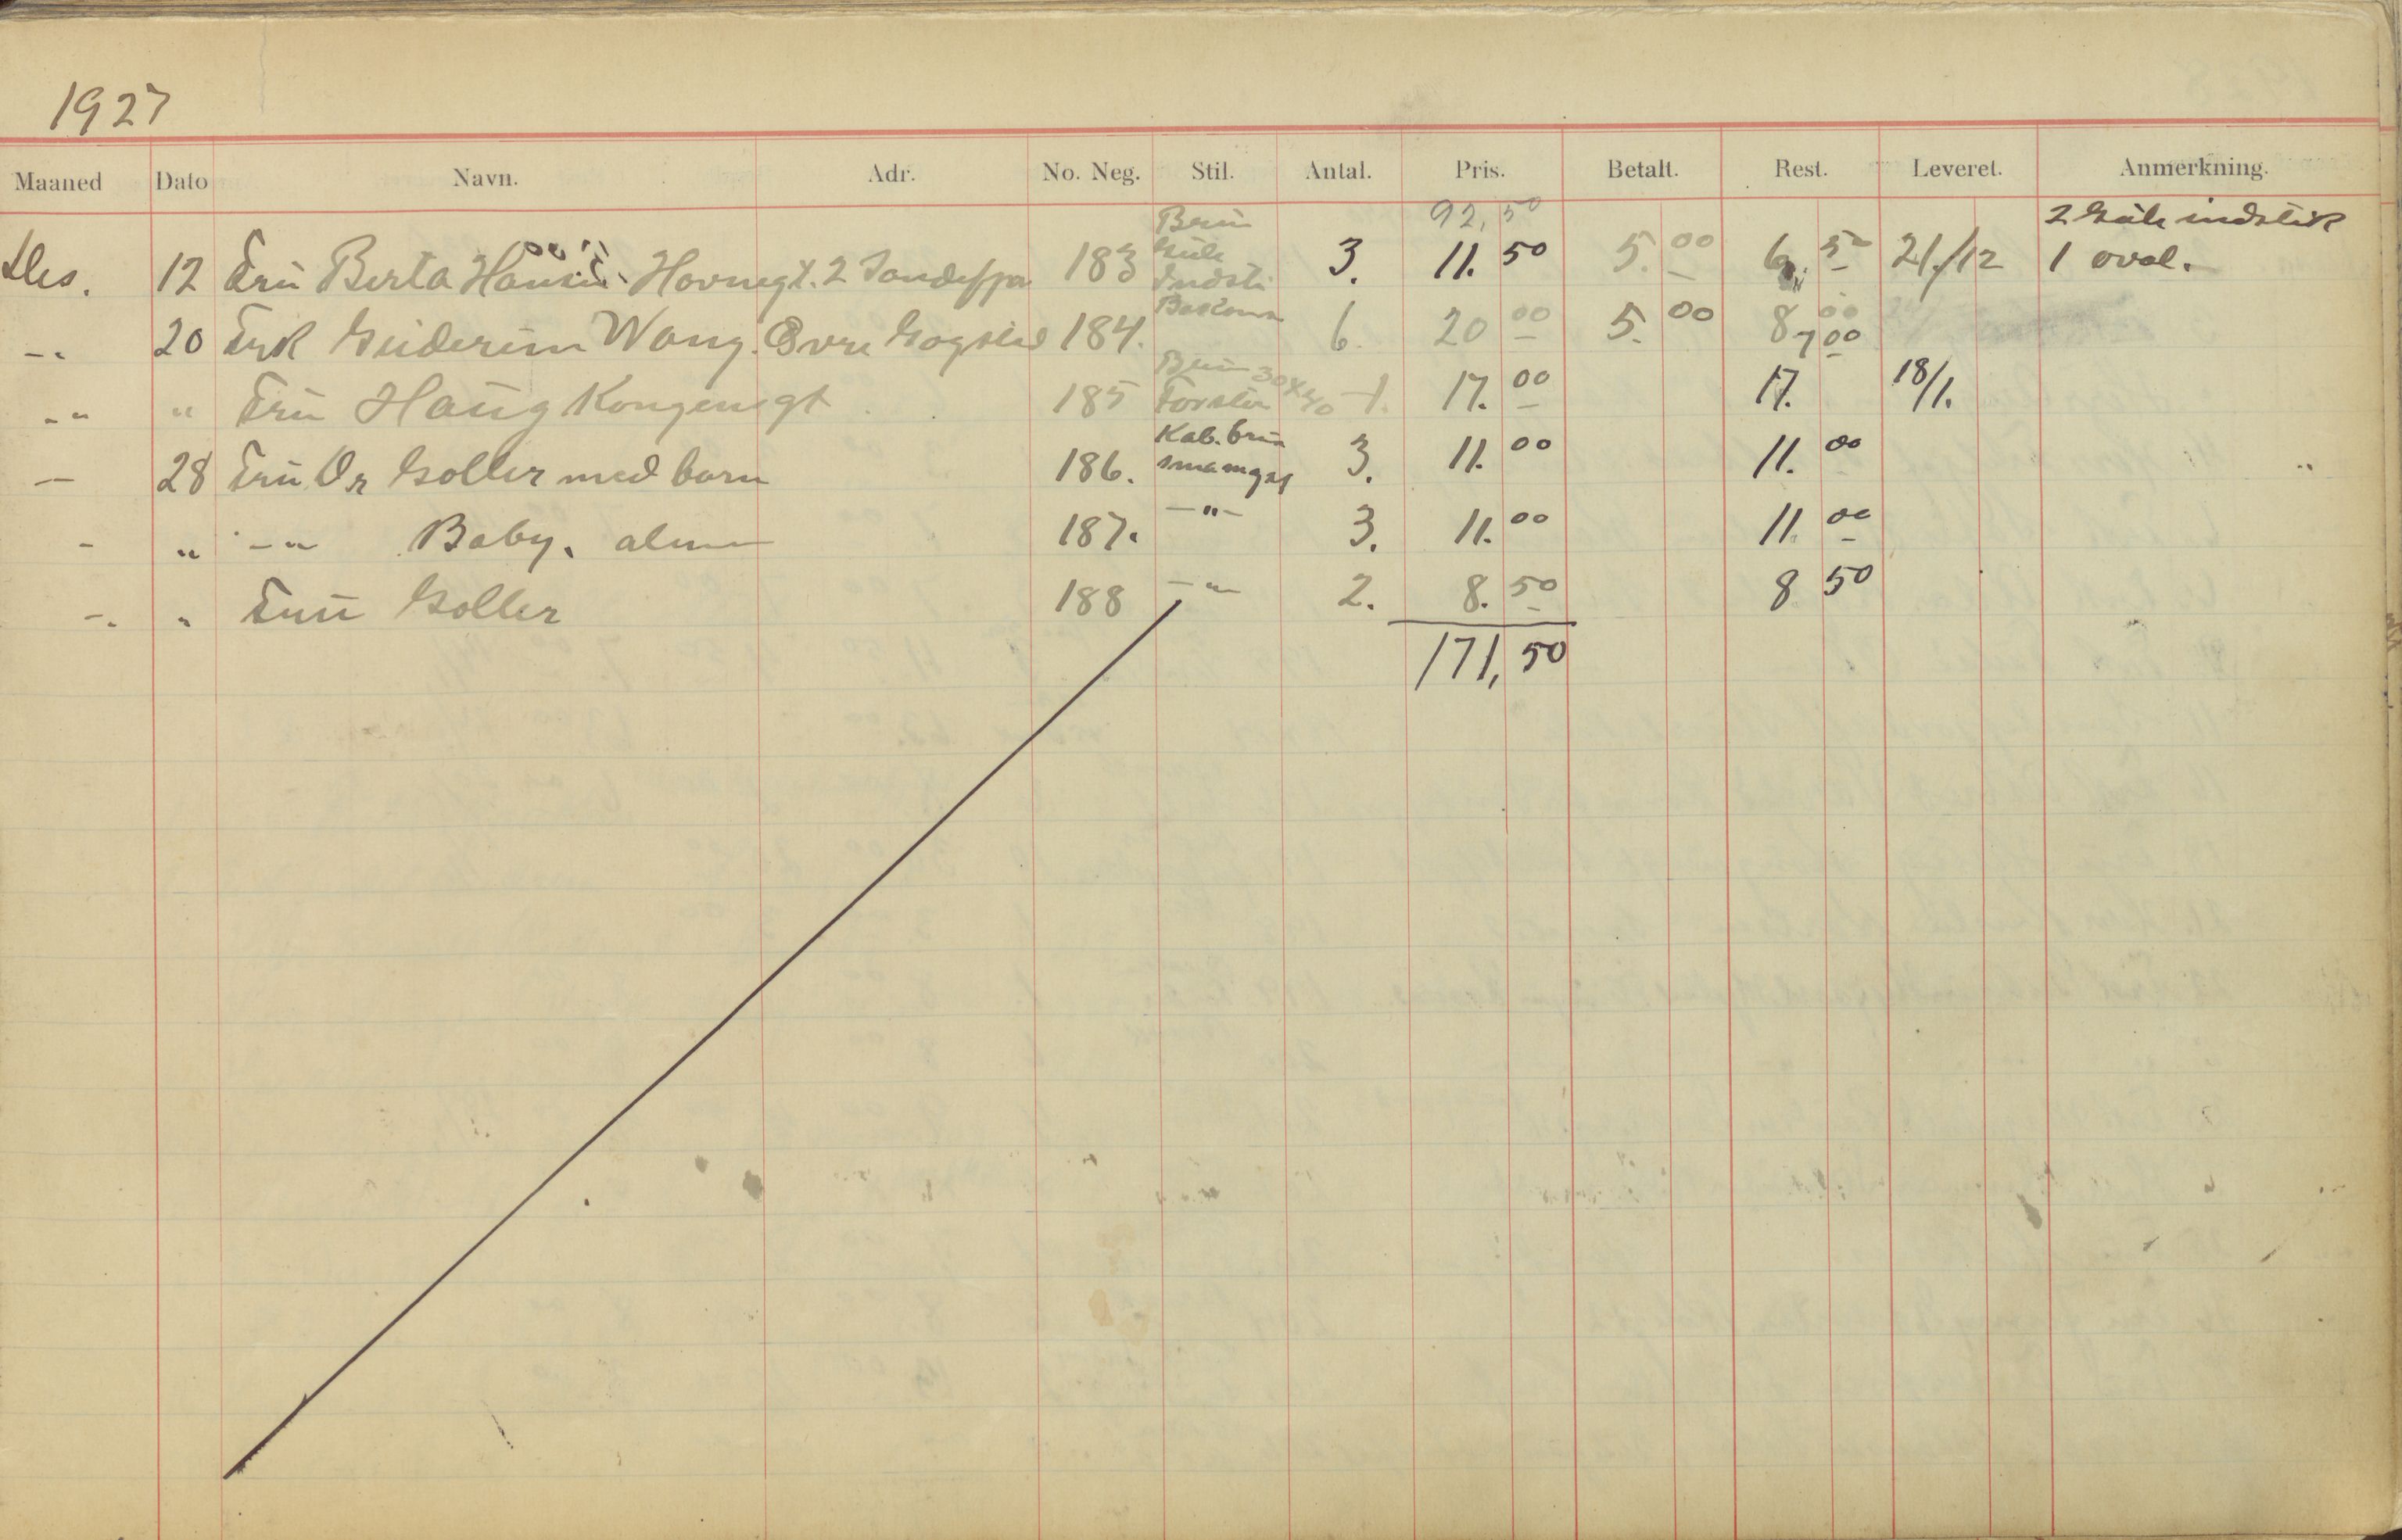 1927
Maaned Dato Navn. Adr. No. Neg. Stil. Antal. Pris. Betalt. Rest. Leveret. Anmerkning.
92,50
Des. 12 Fru Berta Hansen Havnegt. 2 Sandefj 183 Brun Gule Indsti 3. 11.50 5.00 6,50 21./12 2 Gule indstik
1 oval.
-" 20 Frk Guderun Wang. Øvre Gogslid 184. Postkort 6. 20 00 5.00 8 00 7 00
-" " Fru Haug Kongensgt 185 Brun 30x40 Forstør 1. 17.00 17. 18/1.
— 28 Fru Dr Goller med barn 186. Kab. brun 3. 11.00 11.00
- " -" Baby. alene 187. -"- 3. 11.00 11.00
-" " Fru Goller 188 -" 2. 8.50 8 50
171,50